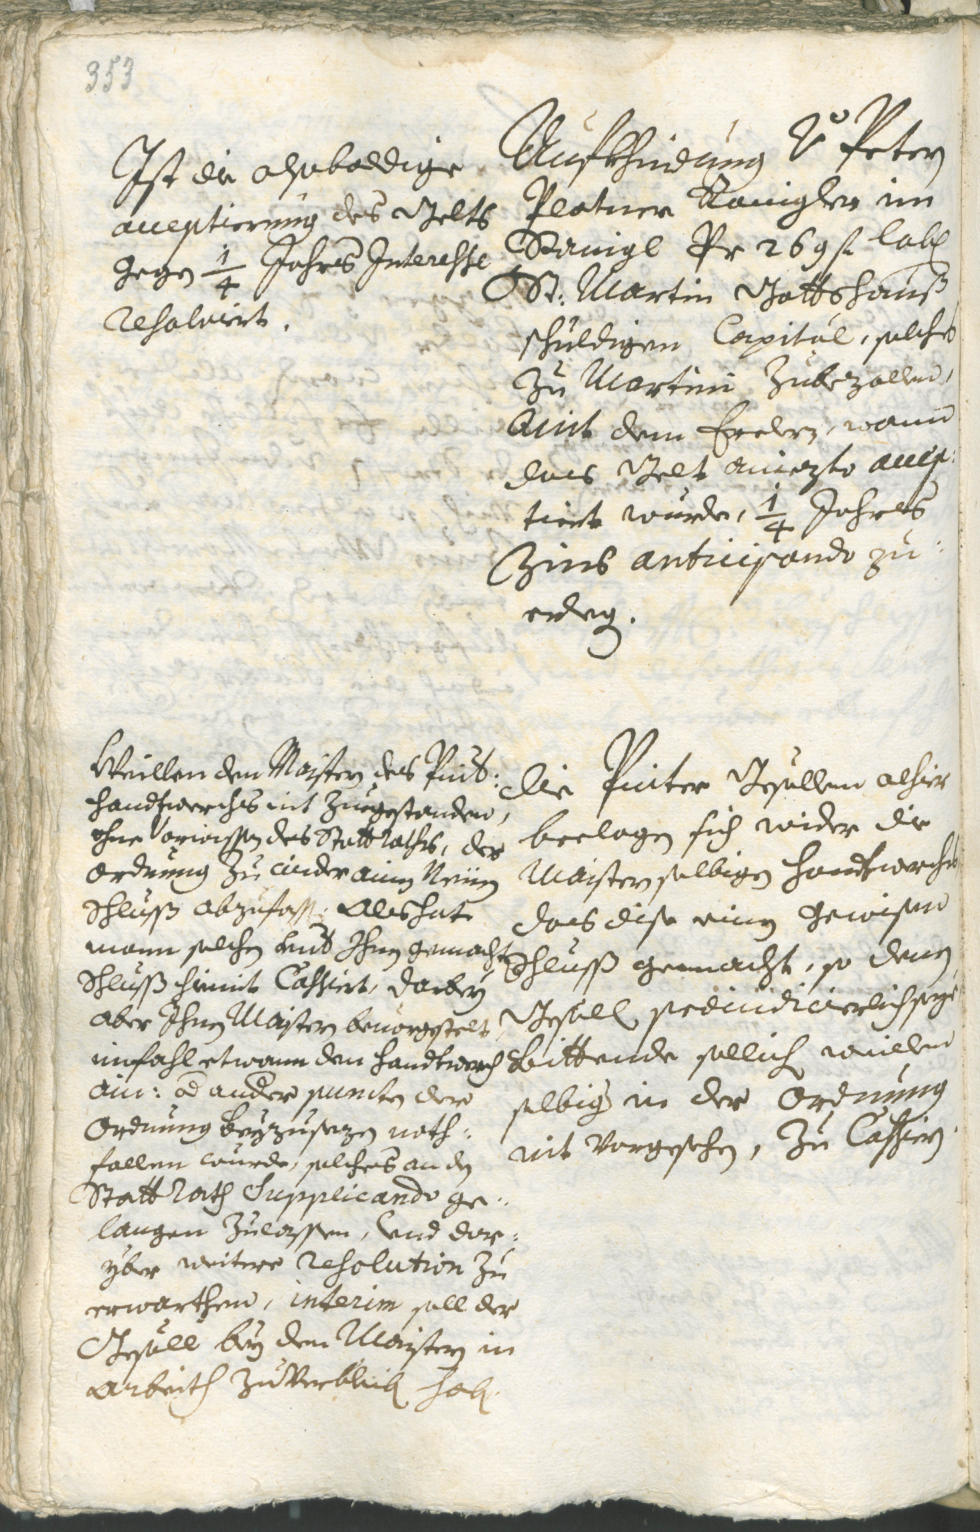 353
Ist die alsobaldige
acceptierung des Gelts
gegen 1/4 Jahrs Interesse
resolvirt.
Aufkhindung Peter
Platner im
Pr 269 f Lobl
St: Martin Gottshauß
schuldigen Capital, solches
zu Martini zubezallen,
mit dem, wann
das Gelt aniezto accep:
tiert wurde, 1/4 Jahrs
Zins anticipando zu:
Weillen den Maistern des Pint:
handtwerchs nit zuegestanden,
ohne Vorwissen des Statt Raths, der
Ordnung zuwider ainen Neuen
Schluß abzufass: Als hat
mann solchen von Ihnen gemachten
Schluß hiemit Cassirt, darbey
aber Ihnen Maistern bevorgestelt,
imfahl etwann dem handtwerch
ain: od ander puncten der
Ordnung beyzusezen noth:
fallen wurde, solches an den
Statt Rath Supplicando ge:
langen zulassen, und dar:
yber weitere resolution zu
erwarthen, interim soll der
Gesöll bey dem Maistern in
arbeith zuverbleib hab.
Die Pinter Gesöllen alhier
beclagen sich wider die
Maister selbigen handtwerchs
das dise einen gewisen
Schluß gemacht, so denen
Gesölln preiudicierlich seye
Bittende sollich weillen
selbiger in der Ordnung
nit vorgesehen, zu Cassiern